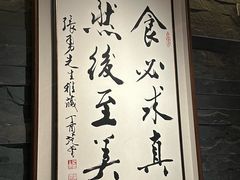 食必求真
然後至美
張勇先生雅藏
丁酉